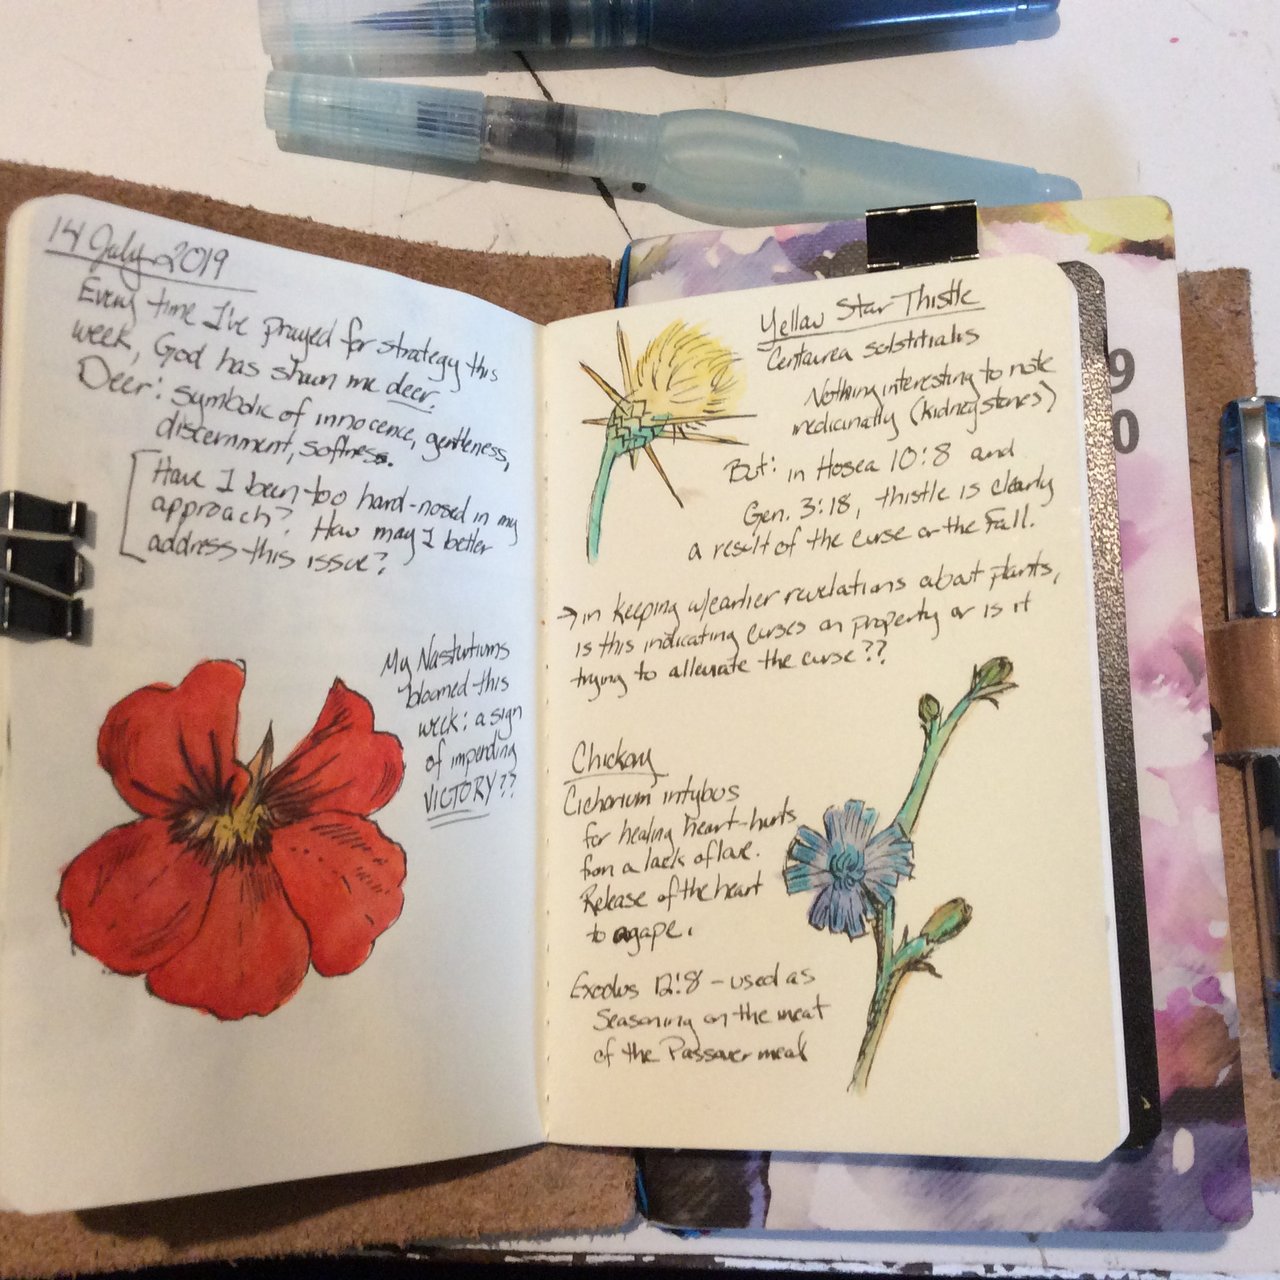 14 July 2019
Every time I've prayed for strategy this
week, God has shown me deer.
Deer: symbolic of innocence, gentleness,
discernment, softness.
Have I been too hard-nosed in my
approach? How may I better
address this issue?
My Nasturtiums
bloomed this
week: a sign
of impending
VICTORY??
Yellow Star Thistle
Centaurea solstitialis
Nothing interesting to note
medicinally (kidney stones)
But: in Hosea 10:8 and
Gen. 3:18, thistle is clearly
a result of the curse or the Fall.
→ in keeping w/earlier revelations about plants,
is this indicating curses on property or is it
trying to alleviate the curse??
Chickory
Cichorium intybus
for healing heart-hurts
from a lack of love.
Release of the heart
to agape.
Exodus 12:8 – used as
Seasoning on the meat
of the Passover meal
9
0